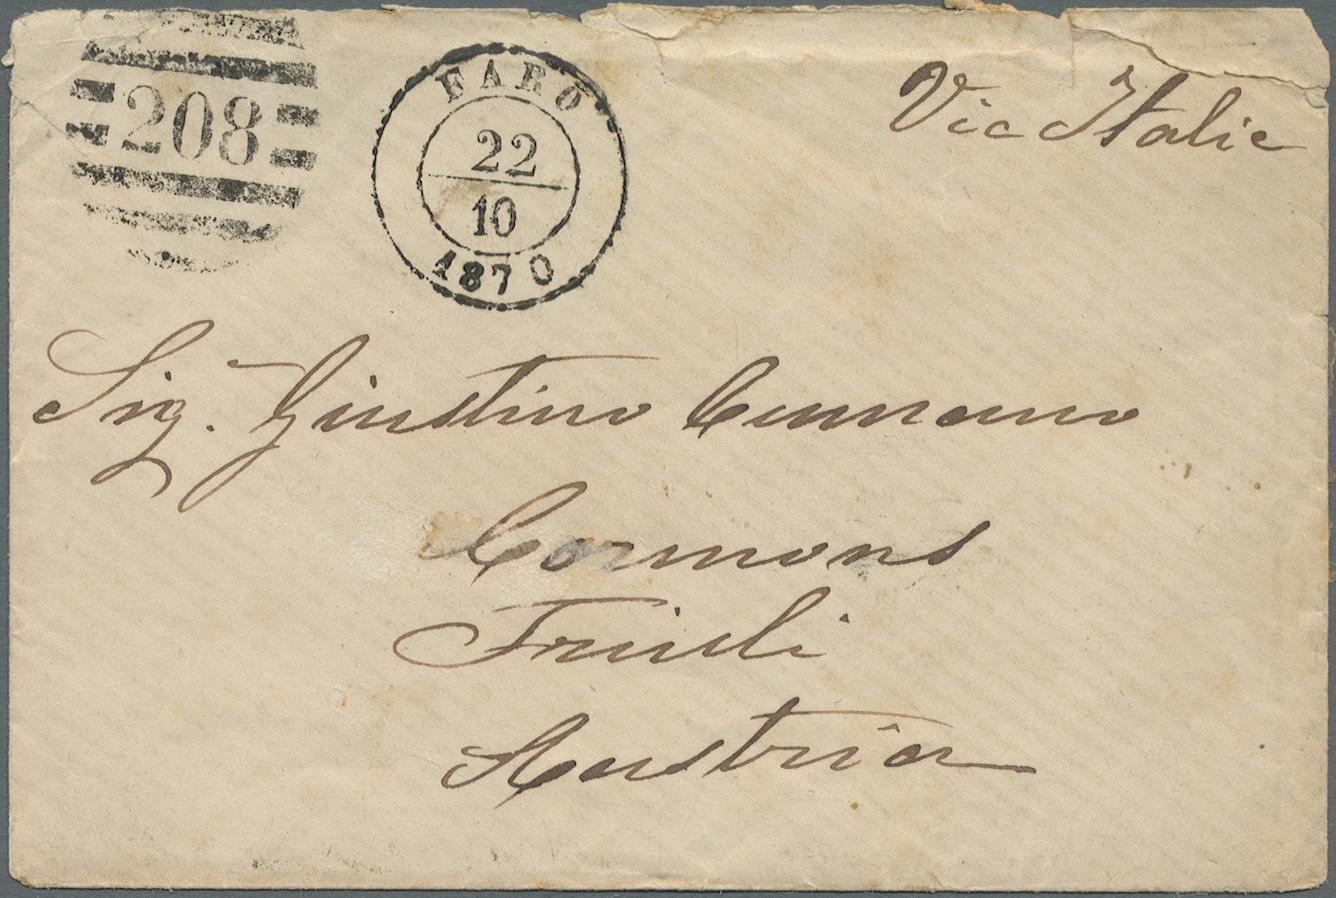 208
FARO
22
10
1870
Via Italie
Sigr. Giustino Cumano
Cormons
Friuli
Austria